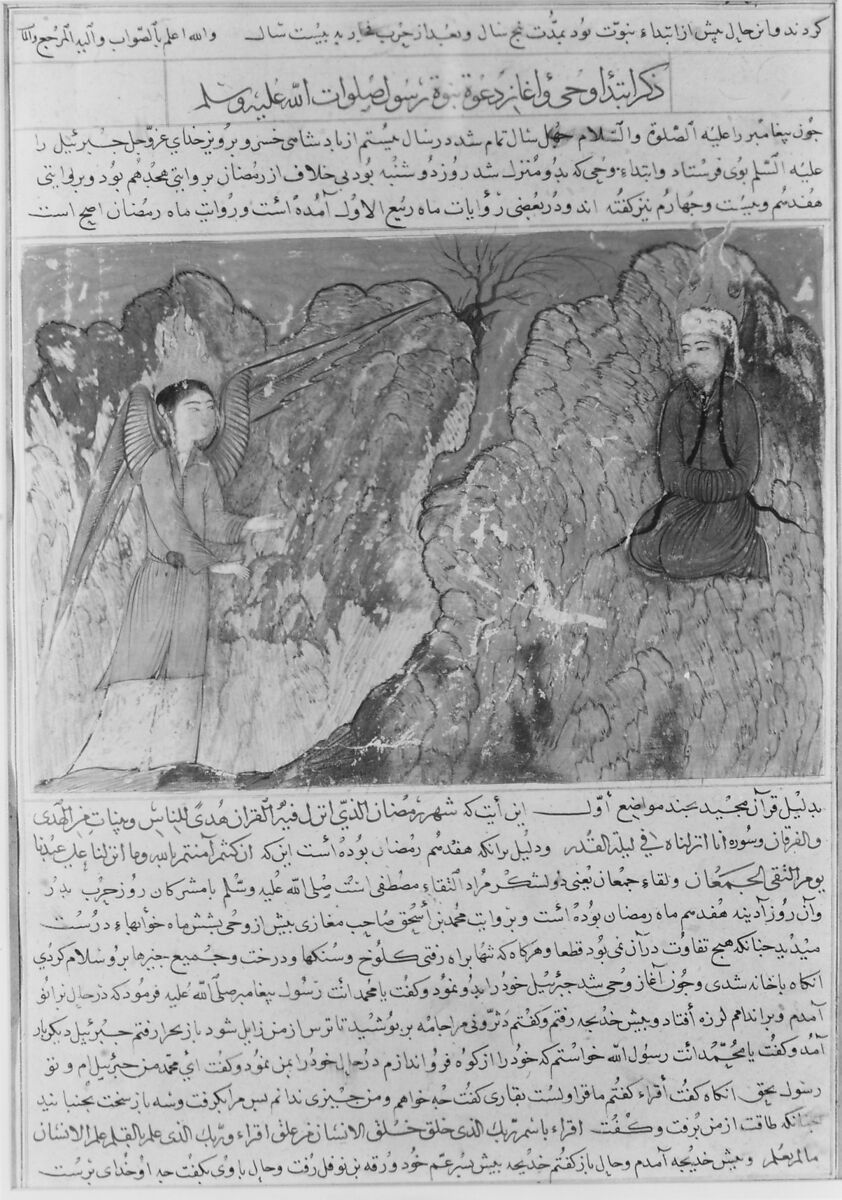 کردند و این حال پیش از ابتداء نبوت بود بمدت پنج سال و بعد از حرب فجار به بیست سال والله اعلم بالصواب والیه المرجع والمآب
ذکر ابتداء وحی و اغاز دعوة نبوة رسول صلوات الله علیه وسلم
جون پیغامبر را علیه الصلوة والسلام جهل سال تمام شد در سال بیستم از پادشاهی خسرو پرویز خدای عز وجل جبرئیل را
علیه السلم بوی فرستاد و ابتداء وحی که بدو منزل شد روز دوشنبه بود بی خلاف از رمضان بروایتی هجدهم بود و بروایتی
هفدهم و بیست و جهارم نیز کفته اند و در بعضی روایات ماه ربیع الاول آمده است و روایت ماه رمضان اصح است
بدلیل قرآن مجید بجند مواضع اول این آیت که شهر رمضان الذی انزل فیه القران هدی للناس وبینات من الهدی
والفرقان و سوره انا انزلناه فی لیلة القدر و دلیل برانکه هفدهم رمضان بوده است این که ان کنتم آمنتم بالله وما انزلنا علی عبدنا
یوم التقی الجمعان و لقاء جمعان یعنی دو لشکر مراد التقاء مصطفی است صلی الله علیه وسلم با مشرکان روز حرب بدر
وآن روز آدینه هفدهم ماه رمضان بوده است و بروایت محمد بن اسحق صاحب مغازی بیش از وحی بشش ماه خوابهاء درست
میدید جنانکه هیج تفاوت در آن نمی بود قطعا و هرکاه که تنها براه رفتی کلوخ و سنکها و درخت و جمیع جیزها برو سلام کردی
انکاه با خانه شدی و جون آغاز وحی شد جبرئیل خود را بدو نمود و کفت یا محمد انت رسول الله پیغامبر صلی الله علیه فرمود که در حال بزانو
آمدم و بر اندامم لرزه افتاد و بیش خدیجه رفتم و کفتم دثرونی مرا جامه بر پوشید تا ترس از من زایل شود باز بحرا رفتم جبرئیل دیکربار
آمد و کفت یا محمد انت رسول الله خواستم که خود را از کوه فرو اندازم در حال خود را بمن نمود و کفت ای محمد من جبرئیل ام و تو
رسول بحق انکاه کفت أقراء کفتم ما قرا ولست بقاری کفت جه خواهم و من جیزی ندانم پس مرا بکرفت و سه بار سخت بجنبانید
جنانکه طاقت از من برفت و کفت اقراء باسم ربک الذی خلق خلق الانسان من علق اقراء وربک الذی علم بالقلم علم الانسان
مالم یعلم و بیش خدیجه آمدم و حال باز کفتم خدیجه بیش پسر عم خود ورقه بن نوفل رفت و حال با وی بکفت جه او خدای پرست